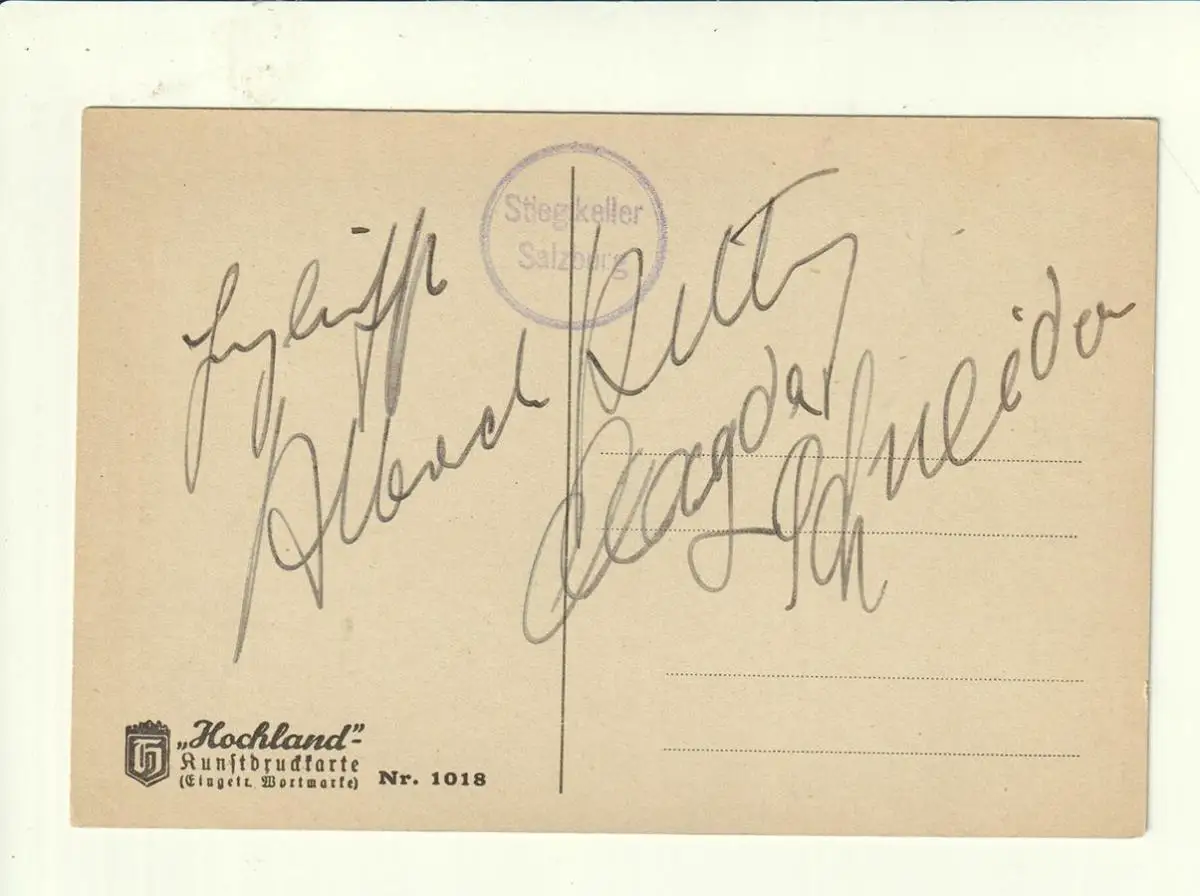 Stieglkeller
Salzburg
Wolf Albach Retty
Magda Schneider
„Hochland”-
Kunstdruckkarte
(Eingetr. Wortmarke) Nr. 1018